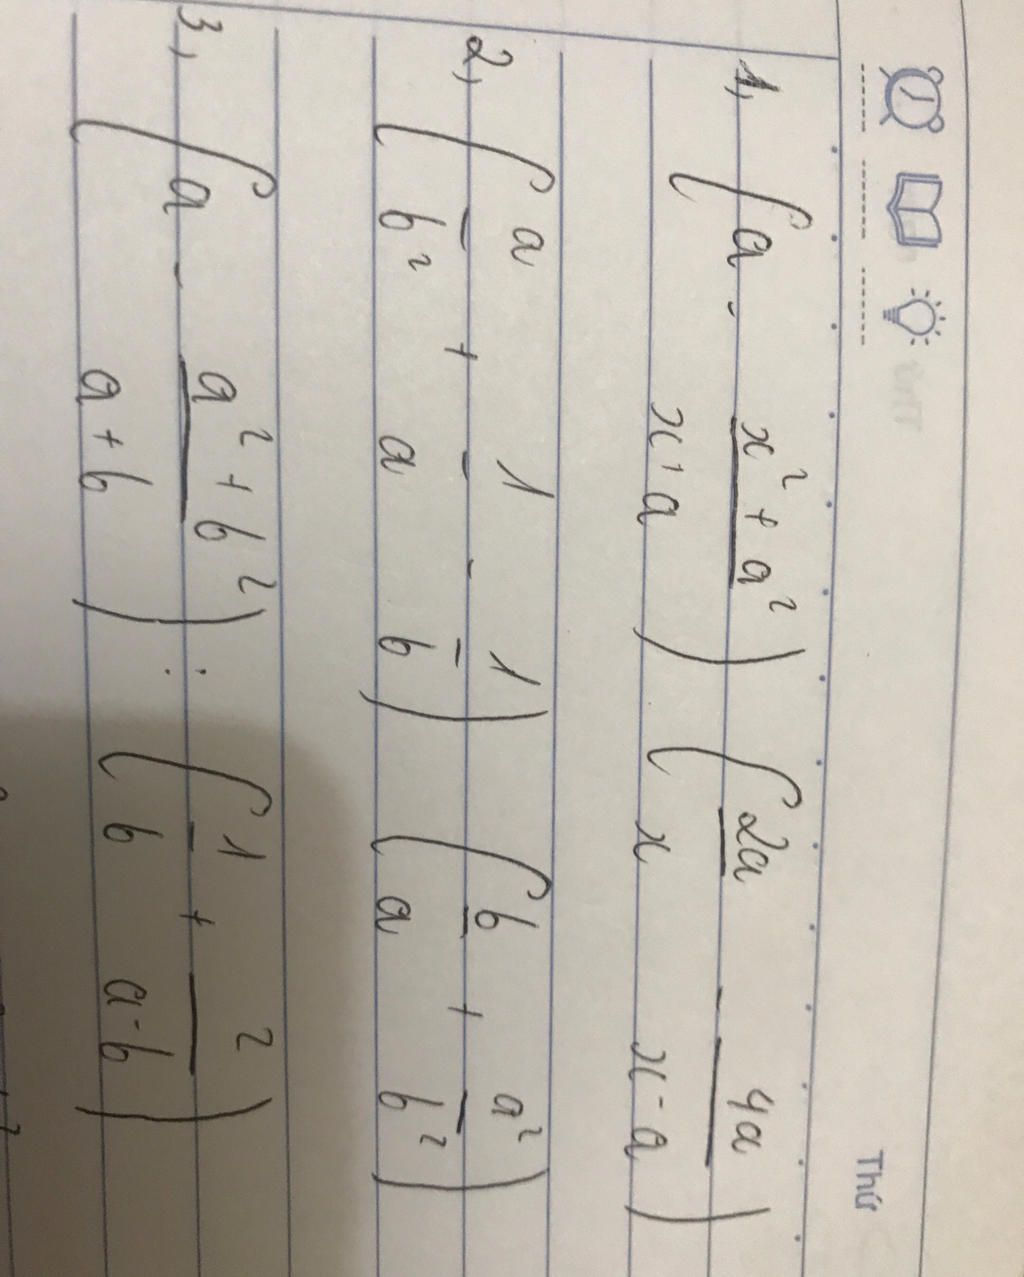 Thứ
1, (a - (x² + a²)/(x + a)) (2a/x - 4a/(x - a))
2, (a/b² + 1/a - 1/b) (b/a + a²/b²)
3, (a - (a² + b²)/(a + b)) : (1/b + 2/(a - b))